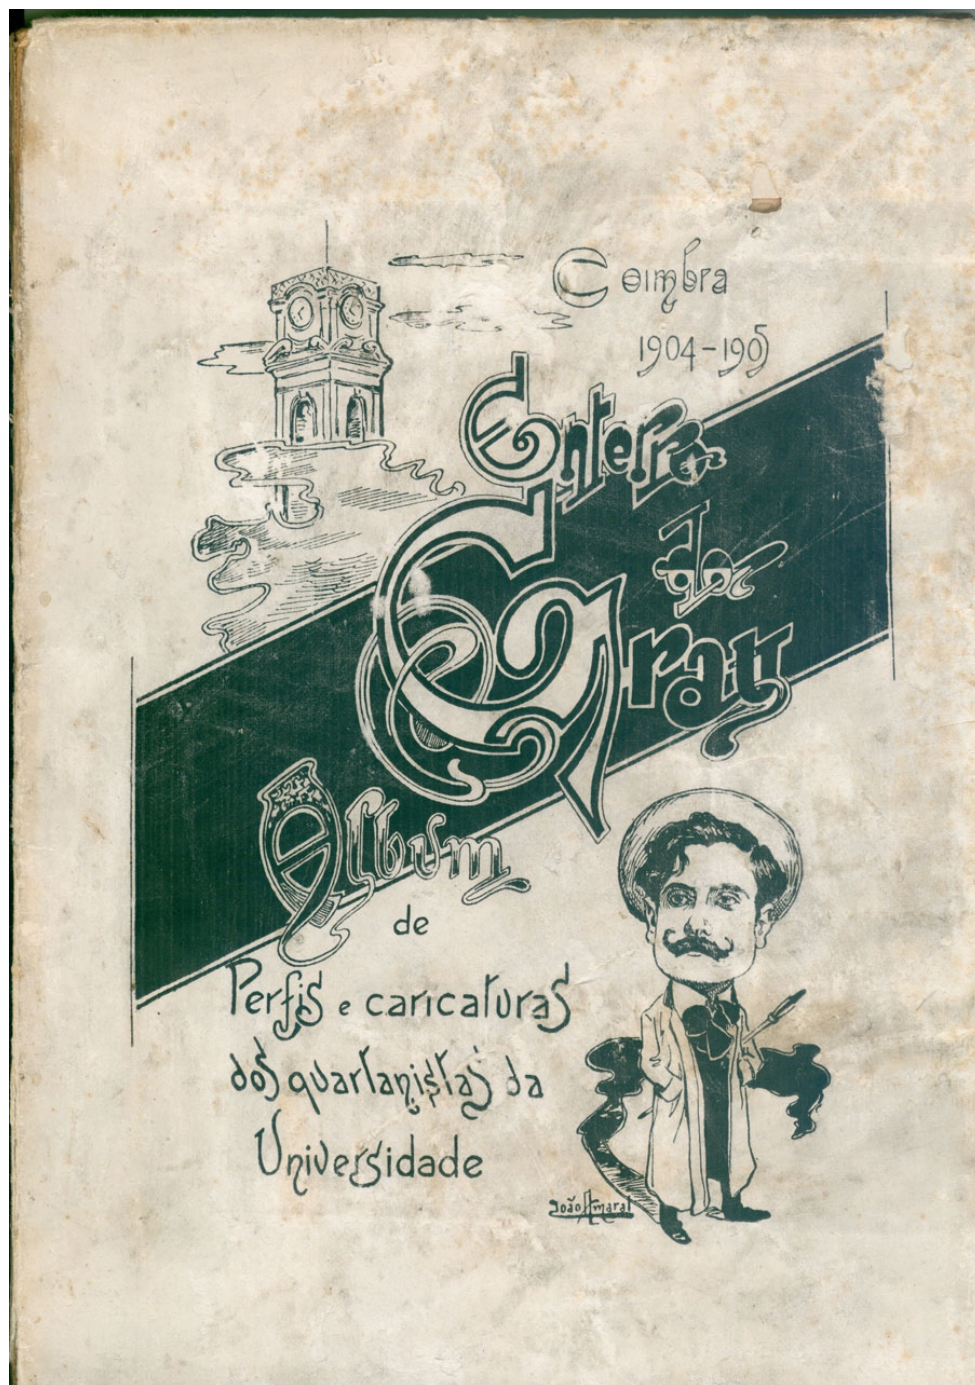 Coimbra
1904-1905
Enterro
do
Grau
Album
de
Perfis e caricaturas
dos quartanistas da
Universidade
João Amaral